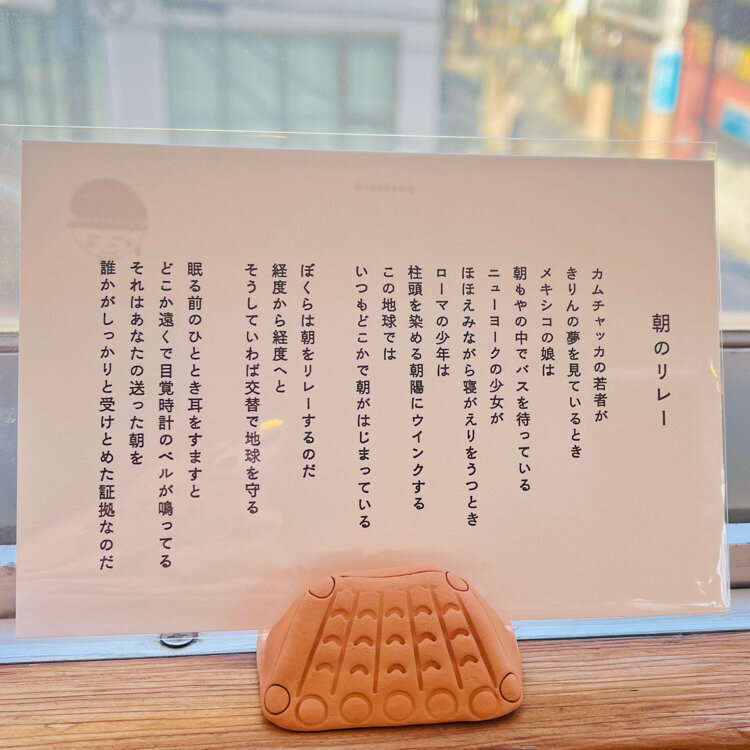 朝のリレー
カムチャッカの若者が
きりんの夢を見ているとき
メキシコの娘は
朝もやの中でバスを待っている
ニューヨークの少女が
ほほえみながら寝がえりをうつとき
ローマの少年は
柱頭を染める朝陽にウインクする
この地球では
いつもどこかで朝がはじまっている
ぼくらは朝をリレーするのだ
経度から経度へと
そうしていわば交替で地球を守る
眠る前のひととき耳をすますと
どこか遠くで目覚時計のベルが鳴ってる
それはあなたの送った朝を
誰かがしっかりと受けとめた証拠なのだ